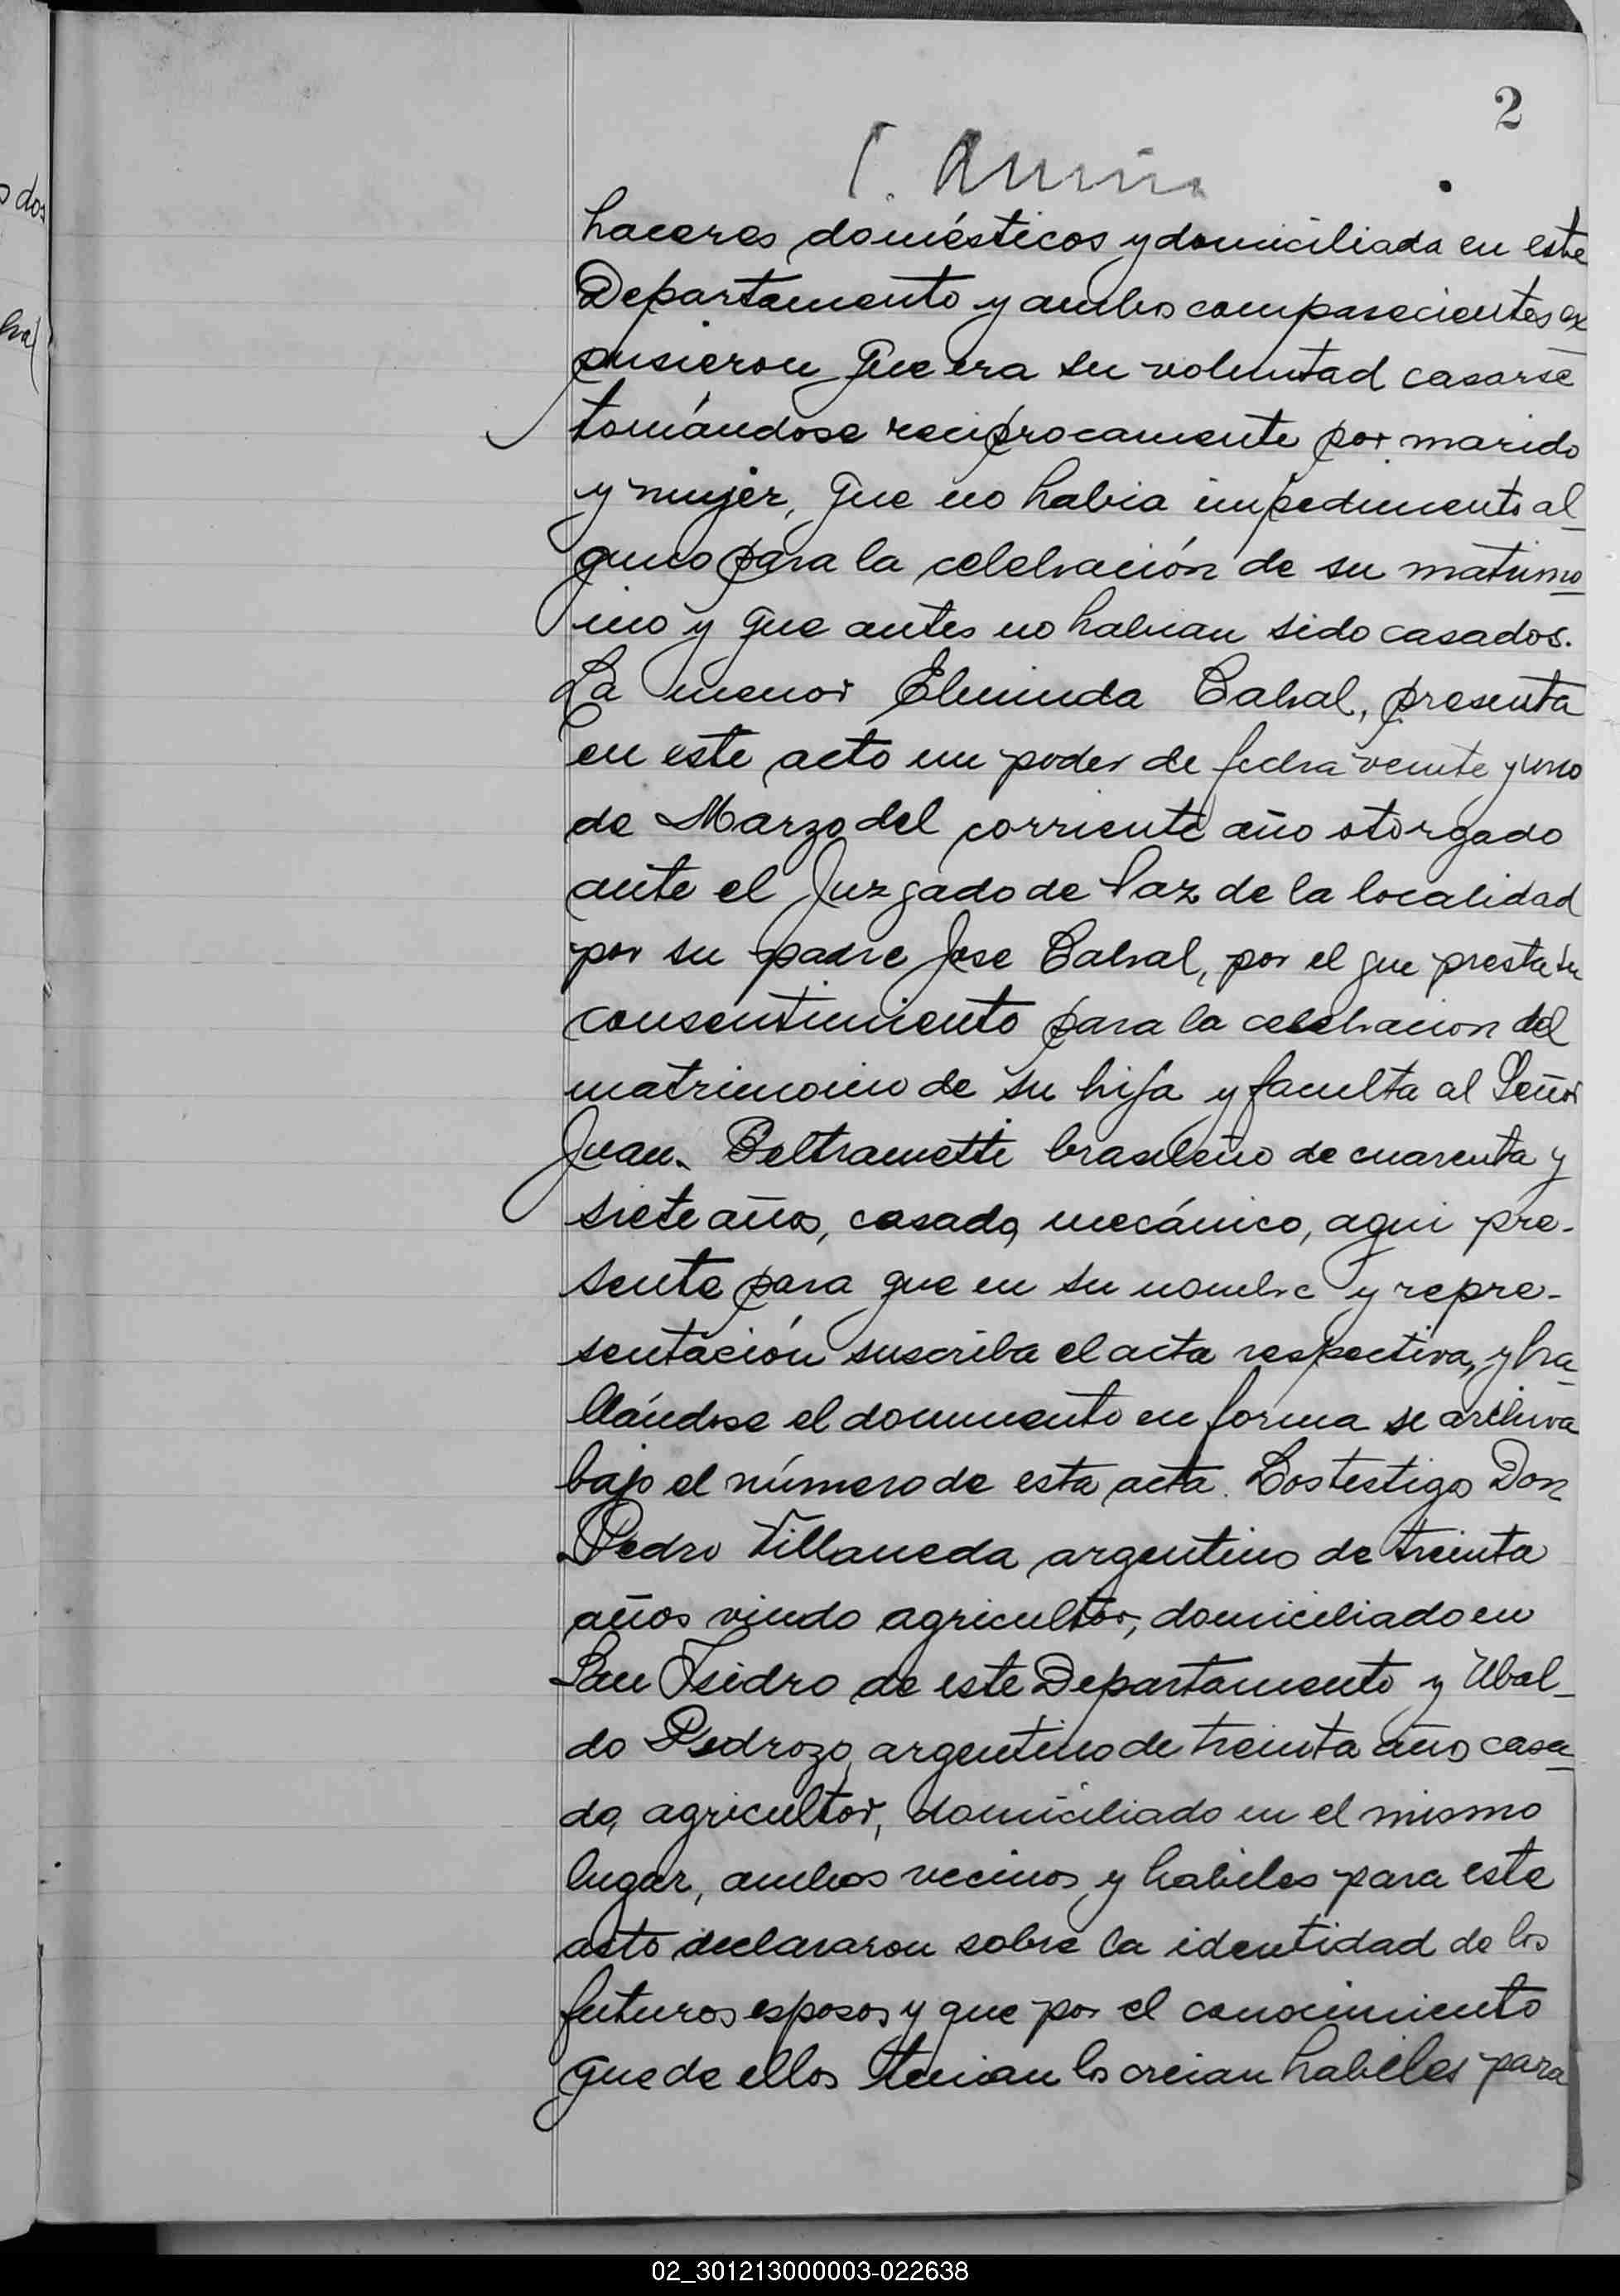 2
haceres domésticos y domiciliada en este
Departamento y ambos comparecientes ex
pusieron que era su voluntad casarse
tomándose reciprocamente por marido
y mujer, que no habia impedimento al_
guno para la celebración de su matrimo
nio y que antes no habian sido casados.
La menor Elminda Cabral, presenta
en este acto un poder de fecha veinte y uno
de Marzo del corriente año otorgado
ante el Juzgado de Paz de la localidad
por su padre Jose Cabral, por el que presta su
consentimiento para la celebracion del
matrimonio de su hija y faculta al Señor
Juan Beltrametti brasileño de cuarenta y
siete años, casado, mecánico, aqui pre-
sente para que en su nombre y repre-
sentación suscriba el acta respectiva, y ha_
llándose el documento en forma se archiva
bajo el número de esta acta. Los testigo Don
Pedro Villaneda argentino de treinta
años viudo agricultor, domiciliado en
San Isidro de este Departamento y Ubal_
do Pedrozo, argentino de treinta año casa_
do, agricultor, domiciliado en el mismo
lugar, ambos vecinos y habiles para este
acto declararon sobre la identidad de los
futuros esposos y que por el conocimiento
que de ellos tenian los creian habiles para
02_301213000003-022638